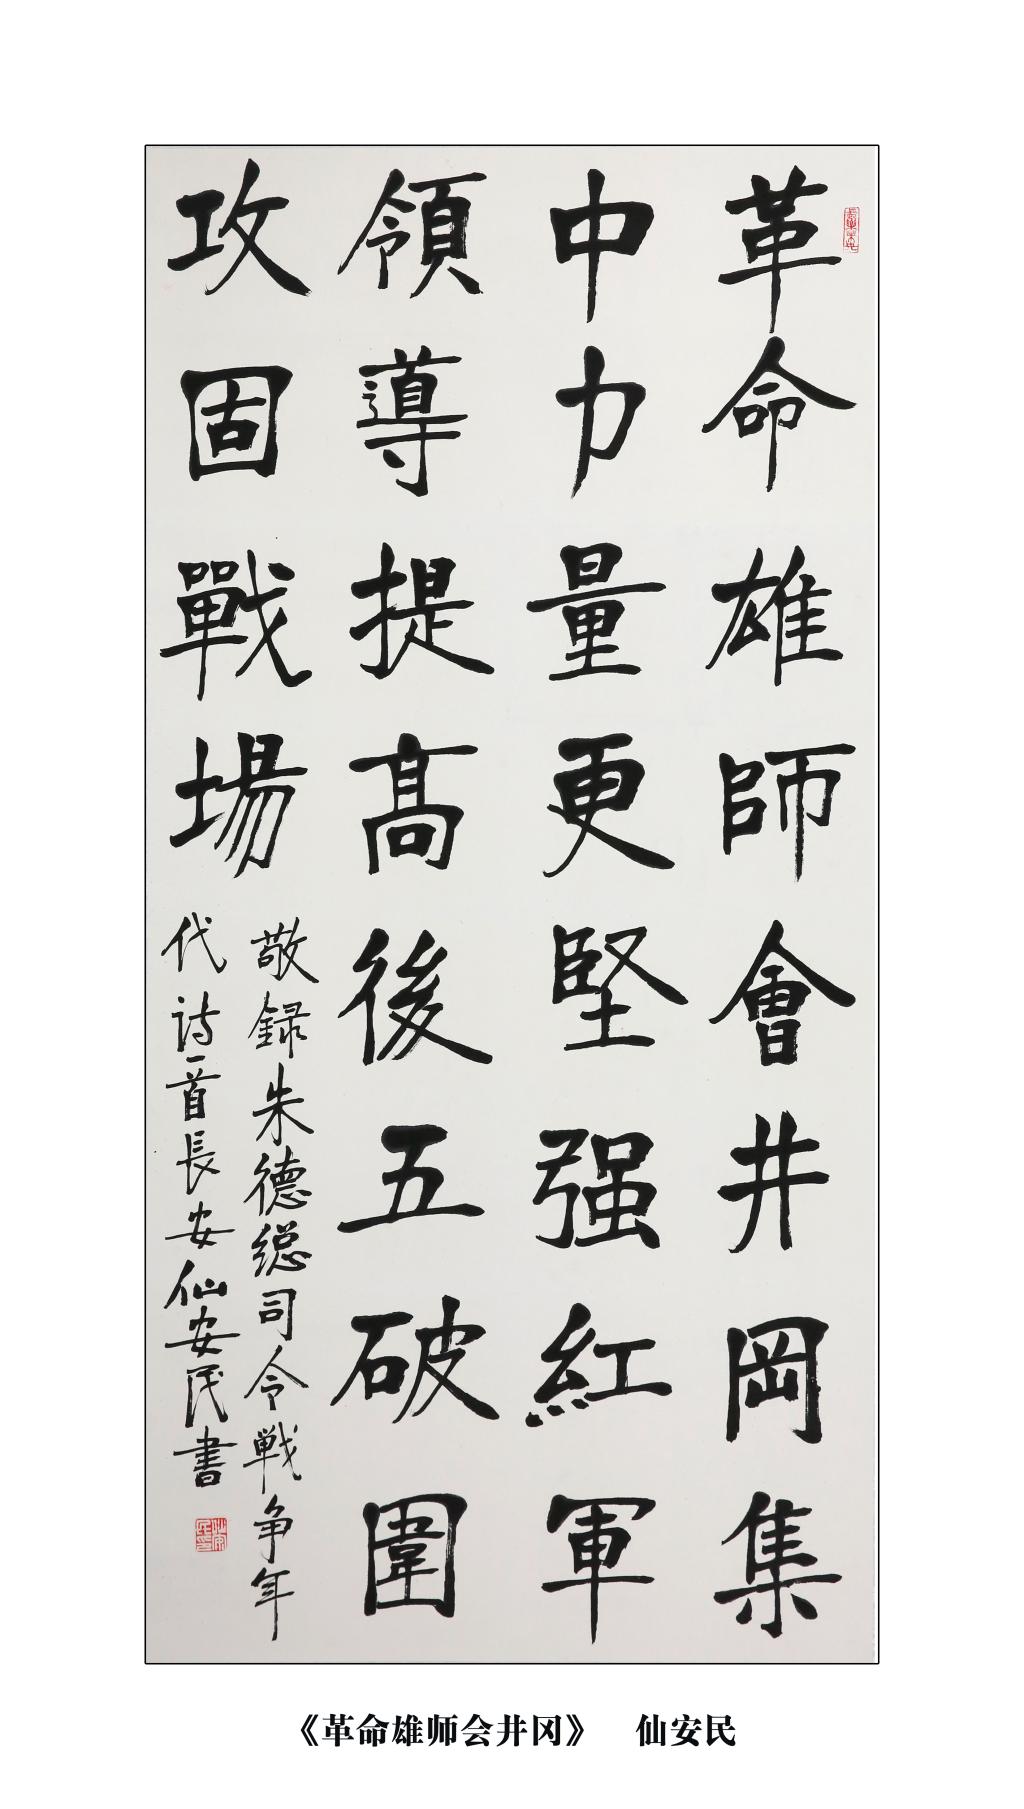 革命雄師會井岡集
中力量更堅强紅軍
領導提高後五破圍
攻固戰場
敬録朱德総司令戦争年
代诗一首長安仙安民書
《革命雄师会井冈》 仙安民